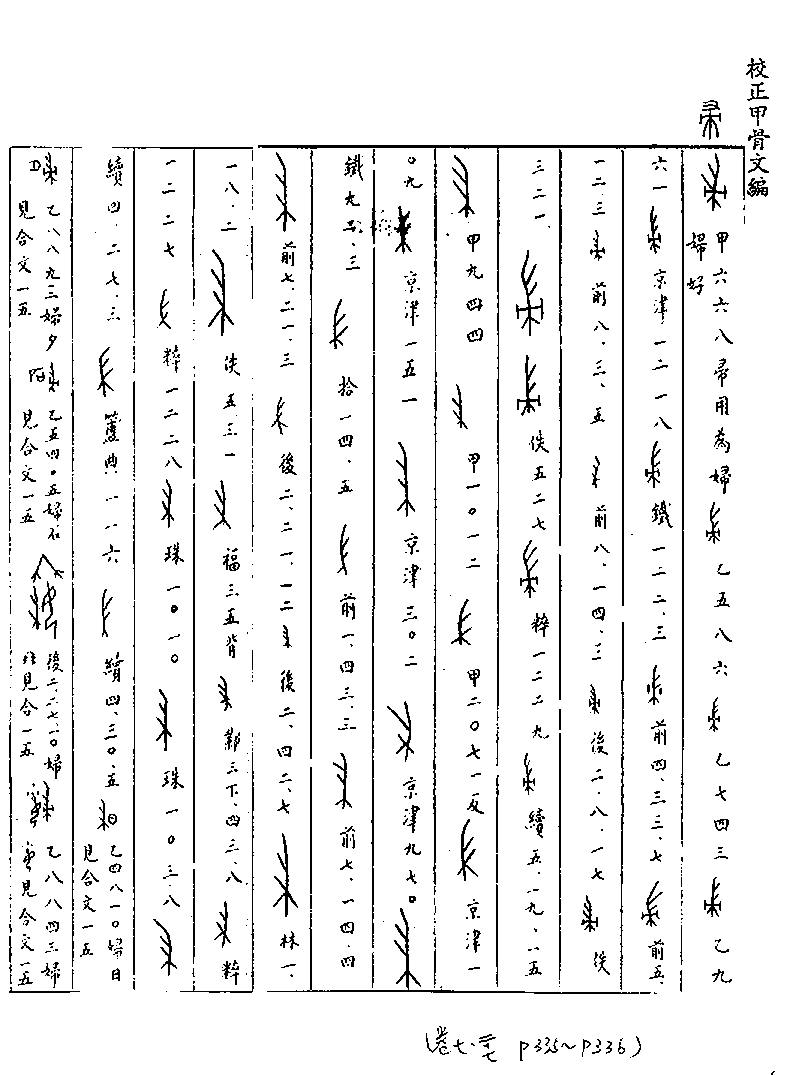 校正甲骨文編
帚
甲六六八帚用為婦婦好 乙五八六 乙七四三 乙九
六一 京津一二一八 鐵一二二.三 前四.三三.七 前五.
一二.三 前八.三.五 前八.一四.三 後二.八.一七 佚
三二一 佚五二七 粹一二二九 續五.一九.一五
甲九四四 甲一〇一二 甲二〇七一反 京津一
〇九 京津一五一 京津三〇二 京津九七〇
鐵九四.三 拾一四.五 前一.四三.三 前七.一四.四
前七.二一.三 後二.二一.一二 後二.四二.七 林一.
一八.二 佚五三一 福三五背 鄴三下.四三.八 粹
一二二七 粹一二二八 珠一〇一〇 珠一〇三八
續四.二七.三 簠典.一一六 續四.三〇.五 乙四八一〇婦日見合文一五
乙八八九三婦夕見合文一五 乙五四〇五婦石見合文一五 後二.二七.一〇婦 見合一五 乙八八四三婦 見合文一五
(卷七.二七 P335~P336)